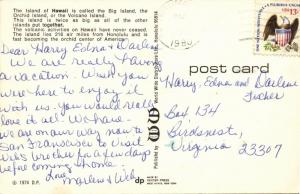 The Island of Hawaii is called the Big Island, the
Orchid Island, or the Volcano Island.
This Island is twice as big as all of the other
islands put together.
The volcanic activities on Hawaii have never ceased.
The Island lies 216 air miles from Honolulu and is
fast becoming the orchid center of America.
Dear Harry, Edna & Darlene
We are really having
a vacation. Wish you
were here to enjoy it
with us. You would really
love it all. We have
are on our way now to
San Francisco to visit
Web's brother for a few days
before coming home.
Love
Marlene & Web
© 1974 D.P.
World Wide Distributors
1980
post card
Harry, Edna and Darlene
Box 134
Birdsnest,
Virginia 23307
13c
dp